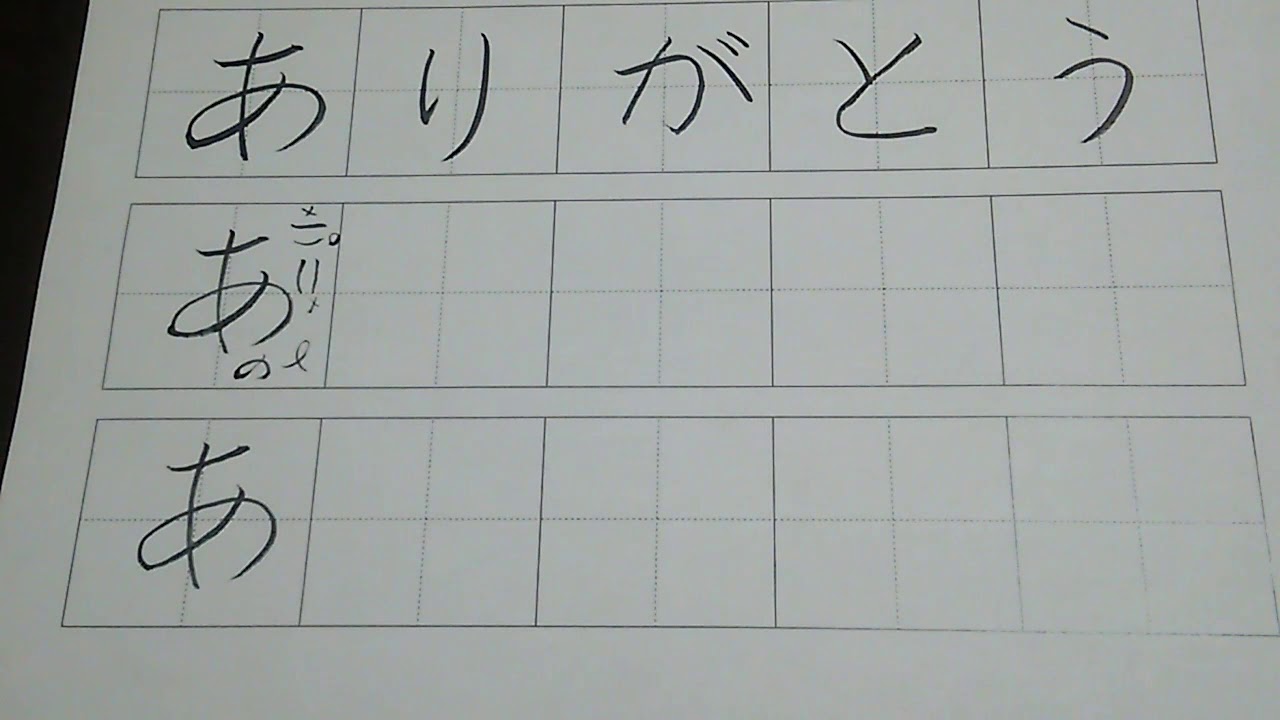 ありがとう
あ
の
あ